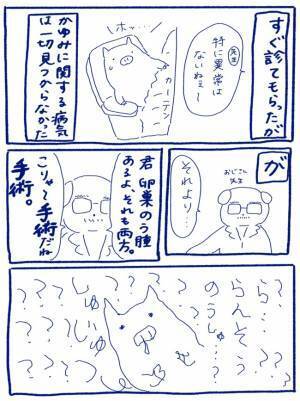 すぐ診てもらったが
先生
特に異常は
ないねぇ〜
ホッ…
カーテン
かゆみに関する病気
は一切見つからなかった
が
おじさん
先生
それより…
君、卵巣のう腫
あるよ、それも両方。
こりゃ〜手術だね
手術。
ら…?
らんそう…??
のうしゅ…?
しゅ
じゅ
つ
???